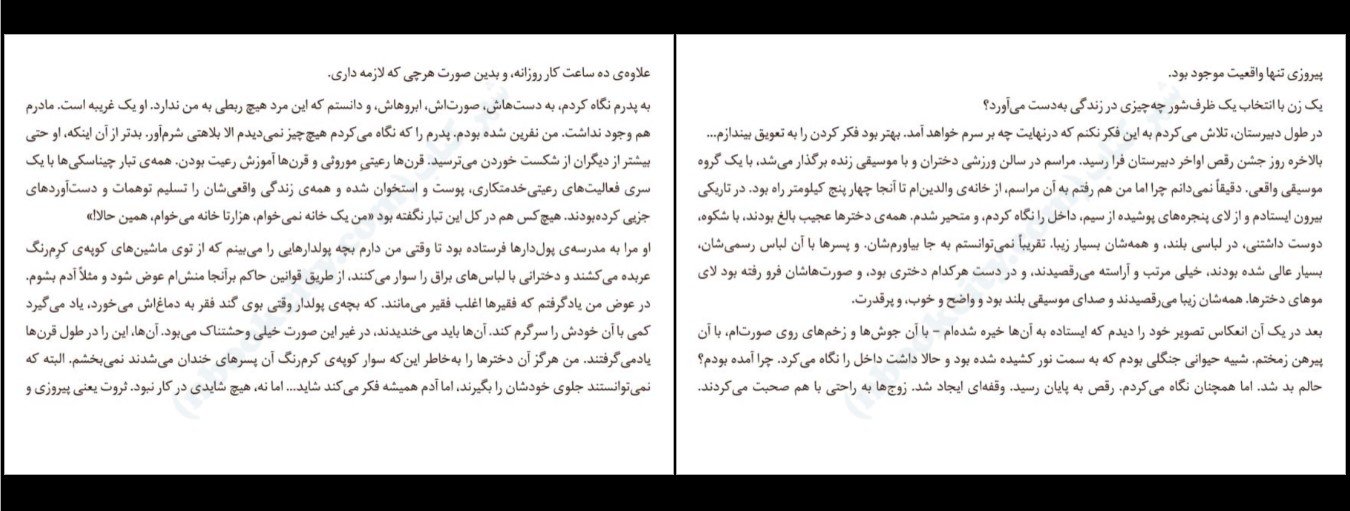 علاوه‌ی ده ساعت کار روزانه، و بدین صورت هرچی که لازمه داری.
به پدرم نگاه کردم، به دست‌هاش، صورت‌اش، ابروهاش، و دانستم که این مرد هیچ ربطی به من ندارد. او یک غریبه است. مادرم
هم وجود نداشت. من نفرین شده بودم. پدرم را که نگاه می‌کردم هیچ‌چیز نمی‌دیدم الا بلاهتی شرم‌آور. بدتر از آن اینکه، او حتی
بیشتر از دیگران از شکست خوردن می‌ترسید. قرن‌ها رعیتیِ موروثی و قرن‌ها آموزش رعیت بودن. همه‌ی تبار چیناسکی‌ها با یک
سری فعالیت‌های رعیتی‌خدمتکاری، پوست و استخوان شده و همه‌ی زندگی واقعی‌شان را تسلیم توهمات و دست‌آوردهای
جزیی کرده‌بودند. هیچ‌کس هم در کل این تبار نگفته بود «من یک خانه نمی‌خوام، هزارتا خانه می‌خوام، همین حالا!»
او مرا به مدرسه‌ی پول‌دارها فرستاده بود تا وقتی من دارم بچه پولدارهایی را می‌بینم که از توی ماشین‌های کوپه‌ی کرِم‌رنگ
عربده می‌کشند و دخترانی با لباس‌های براق را سوار می‌کنند، از طریق قوانین حاکم برآنجا منش‌ام عوض شود و مثلاً آدم بشوم.
در عوض من یادگرفتم که فقیرها اغلب فقیر می‌مانند. که بچه‌ی پولدار وقتی بوی گند فقر به دماغ‌اش می‌خورد، یاد می‌گیرد
کمی با آن خودش را سرگرم کند. آن‌ها باید می‌خندیدند، در غیر این صورت خیلی وحشتناک می‌بود. آن‌ها، این را در طول قرن‌ها
یادمی‌گرفتند. من هرگز آن دخترها را به‌خاطر این‌که سوار کوپه‌ی کرم‌رنگ آن پسرهای خندان می‌شدند نمی‌بخشم. البته که
نمی‌توانستند جلوی خودشان را بگیرند، اما آدم همیشه فکر می‌کند شاید... اما نه، هیچ شایدی در کار نبود. ثروت یعنی پیروزی و
پیروزی تنها واقعیت موجود بود.
یک زن با انتخاب یک ظرف‌شور چه‌چیزی در زندگی به‌دست می‌آورد؟
در طول دبیرستان، تلاش می‌کردم به این فکر نکنم که درنهایت چه بر سرم خواهد آمد. بهتر بود فکر کردن را به تعویق بیندازم...
بالاخره روز جشن رقص اواخر دبیرستان فرا رسید. مراسم در سالن ورزشی دختران و با موسیقی زنده برگذار می‌شد، با یک گروه
موسیقی واقعی. دقیقاً نمی‌دانم چرا اما من هم رفتم به آن مراسم، از خانه‌ی والدین‌ام تا آنجا چهار پنج کیلومتر راه بود. در تاریکی
بیرون ایستادم و از لای پنجره‌های پوشیده از سیم، داخل را نگاه کردم، و متحیر شدم. همه‌ی دخترها عجیب بالغ بودند، با شکوه،
دوست داشتنی، در لباسی بلند، و همه‌شان بسیار زیبا. تقریباً نمی‌توانستم به جا بیاورم‌شان. و پسرها با آن لباس رسمی‌شان،
بسیار عالی شده بودند، خیلی مرتب و آراسته می‌رقصیدند، و در دست هرکدام دختری بود، و صورت‌هاشان فرو رفته بود لای
موهای دخترها. همه‌شان زیبا می‌رقصیدند و صدای موسیقی بلند بود و واضح و خوب، و پرقدرت.
بعد در یک آن انعکاس تصویر خود را دیدم که ایستاده به آن‌ها خیره شده‌ام - با آن جوش‌ها و زخم‌های روی صورت‌ام، با آن
پیرهن زمختم. شبیه حیوانی جنگلی بودم که به سمت نور کشیده شده بود و حالا داشت داخل را نگاه می‌کرد. چرا آمده بودم؟
حالم بد شد. اما همچنان نگاه می‌کردم. رقص به پایان رسید. وقفه‌ای ایجاد شد. زوج‌ها به راحتی با هم صحبت می‌کردند.